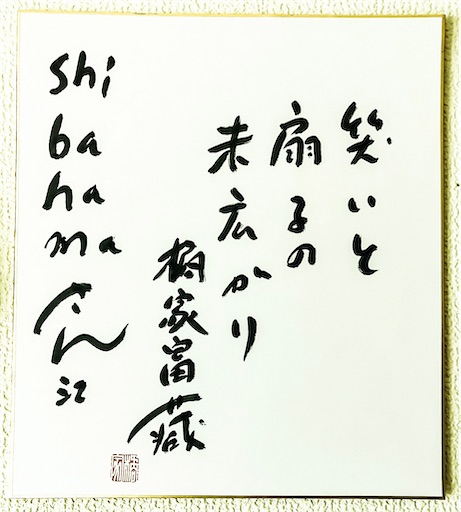 笑いと
扇子の
末広がり
橘家富蔵
shi
ba
ha
ma
さん江